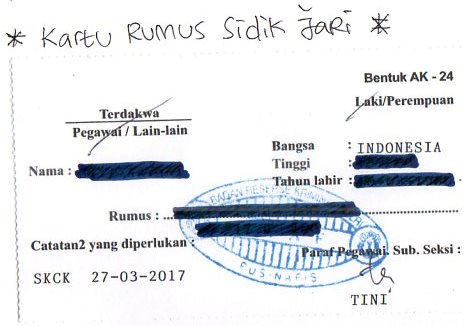 * Kartu Rumus Sidik Jari *
Bentuk AK - 24
Terdakwa
Pegawai / Lain-lain
Laki/Perempuan
Bangsa : INDONESIA
Tinggi :
Tahun lahir :
Nama :
Rumus :
Catatan2 yang diperlukan :
Paraf Pegawai. Sub. Seksi :
SKCK 27-03-2017
TINI
BADAN RESERSE KRIMINAL
PUSINAFIS